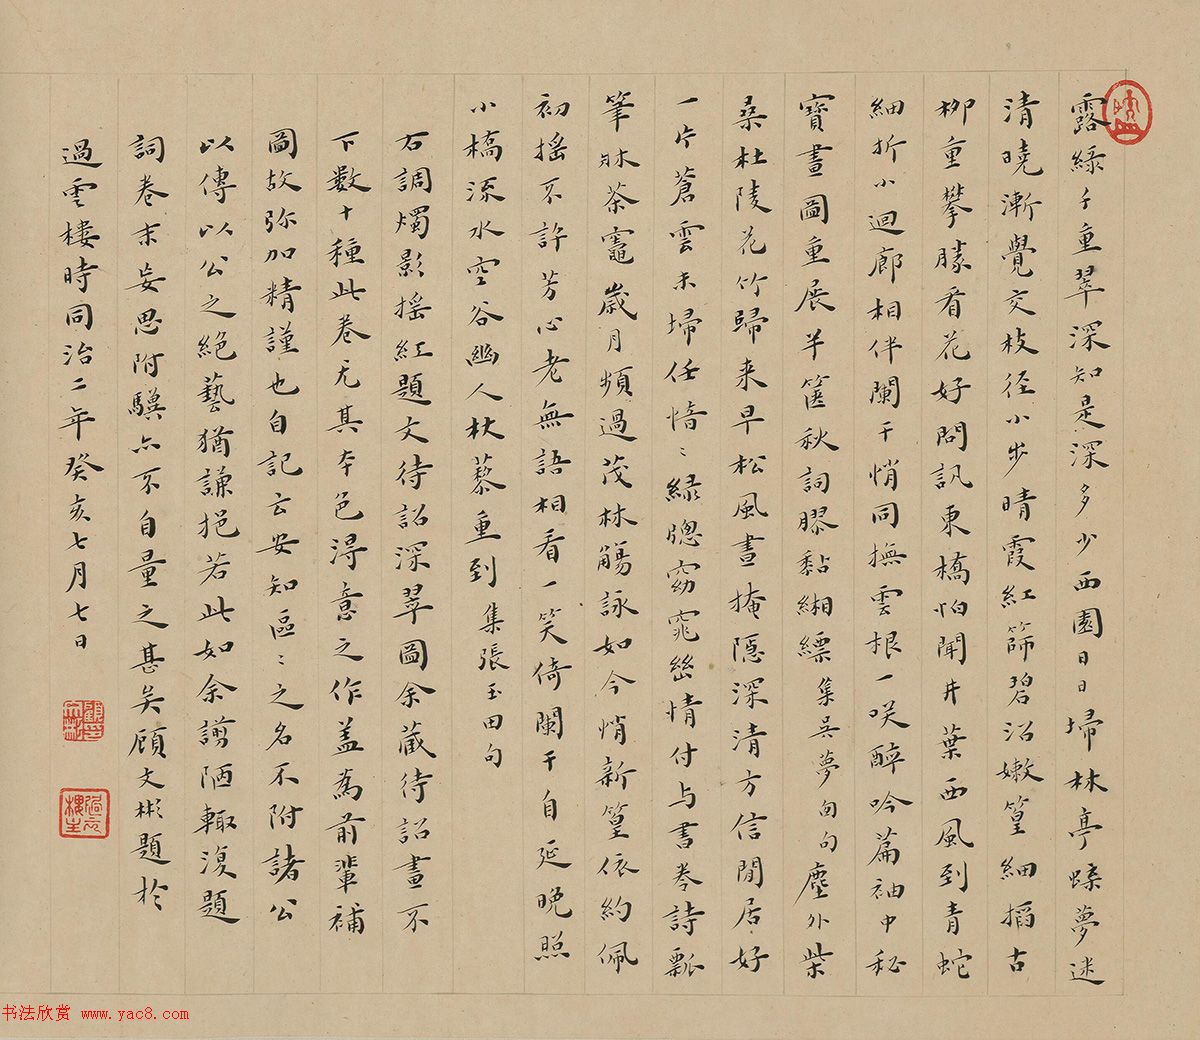 露綠千重翠深知是深多少西園日日埽林亭蝶夢迷
清曉漸覺交枝徑小步晴霞紅篩碧沼嫩篁細搯古
柳重攀朦看花好問訊東橋怕聞井葉西風到青蛇
細折小迴廊相伴闌干悄同撫雲根一咲醉吟篇袖中秘
寶晝圖重展半篋秋詞膠黏緗縹集吳夢囪句塵外柴
桑杜陵花竹歸来早松風晝掩隱深清方信閒居好
一片蒼雲未埽任愔〻綠窗窈窕幽情付与書卷詩瓢
筆牀茶竈歲月頻過茂林觴詠如今悄新篁依約佩
初搖不許芳心老無語相看一笑倚闌干自延晚照
小橋流水空谷幽人杖藜重到集張玉田句
右調燭影搖紅題文待詔深翠圖余藏待詔畫不
下數十種此卷尤其本色得意之作盖為前輩補
圖故弥加精謹也自記云安知區〻之名不附諸公
以傳以公之絕藝猶謙挹若此如余謭陋輙漫題
詞卷末妄思附驥亦不自量之甚矣顧文彬題於
過雲樓時同治二年癸亥七月七日
书法欣赏 www.yac8.com